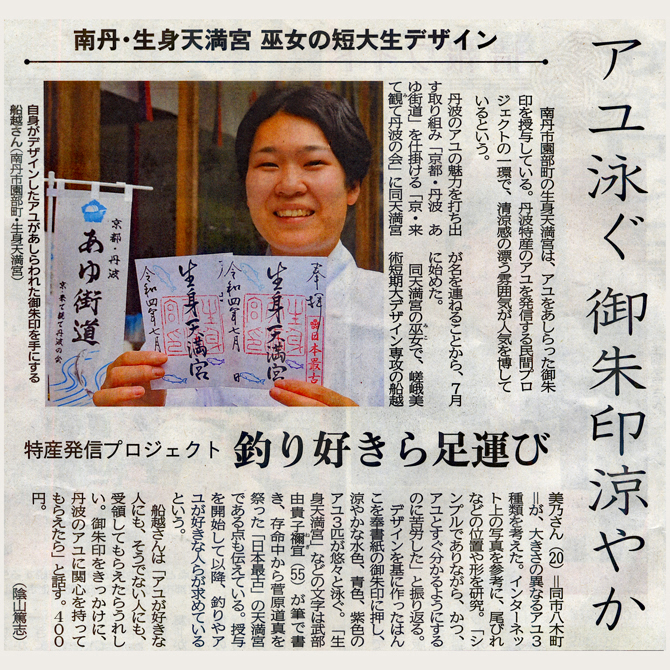 南丹・生身天満宮 巫女の短大生デザイン
アユ泳ぐ 御朱印涼やか
南丹市園部町の生身天満宮は、アユをあしらった御朱
印を授与している。丹波特産のアユを発信する民間プロ
ジェクトの一環で、清涼感の漂う雰囲気が人気を博して
いるという。
丹波のアユの魅力を打ち出
す取り組み「京都・丹波 あ
ゆ街道」を仕掛ける「京・来
て観て丹波の会」に同天満宮
が名を連ねることから、7月
に始めた。
同天満宮の巫女で、嵯峨美
術短期大デザイン専攻の船越
みこ
自身がデザインしたアユがあしらわれた御朱印を手にする
船越さん(南丹市園部町・生身天満宮)
京都・丹波
あゆ街道
京・来て観て丹波の会
奉拝
日本最古
生身天満宮
令和四年七月 日
生身天満宮
令和四年七月
特産発信プロジェクト
釣り好きら足運び
美乃さん(20)=同市八木町
=が、大きさの異なるアユ3
種類を考えた。インターネッ
ト上の写真を参考に、尾びれ
などの位置や形を研究。「シ
ンプルでありながら、かつ、
アユとすぐ分かるようにする
のに苦労した」と振り返る。
デザインを基に作ったはん
こを奉書紙の御朱印に押し、
涼やかな水色、青色、紫色の
アユ3匹が悠々と泳ぐ。「生
身天満宮」などの文字は武部
由貴子禰宜(55)が筆で書
き、存命中から菅原道真を
祭った「日本最古」の天満宮
である点も伝えている。授与
を開始して以降、釣りやア
ユが好きな人らが求めている
という。
船越さんは「アユが好きな
人にも、そうでない人にも、
受領してもらえたらうれし
い。御朱印をきっかけに、
丹波のアユに関心を持って
もらえたら」と話す。400
円。
(陰山篤志)